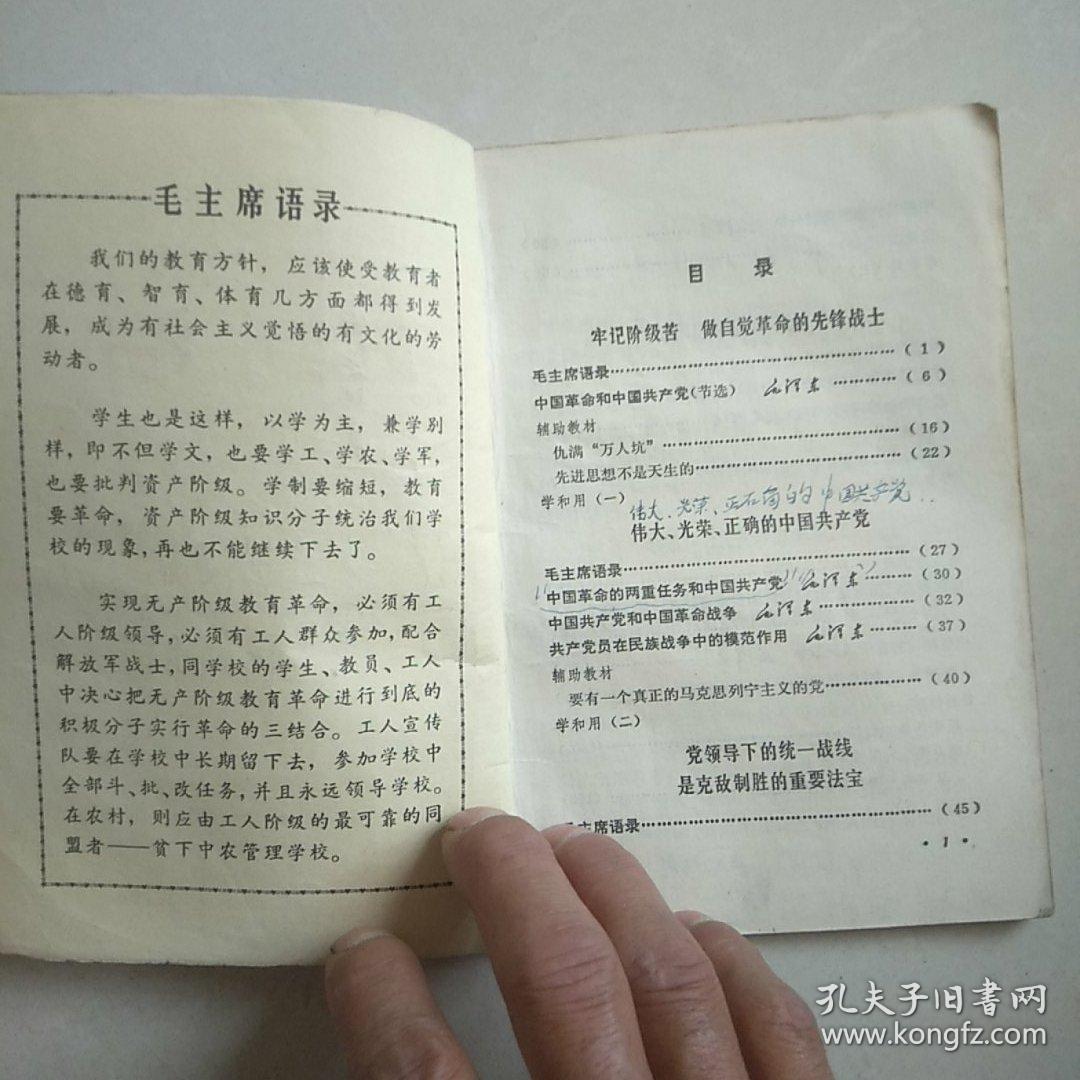 毛主席语录
我们的教育方针，应该使受教育者
在德育、智育、体育几方面都得到发
展，成为有社会主义觉悟的有文化的劳
动者。
学生也是这样，以学为主，兼学别
样，即不但学文，也要学工、学农、学军，
也要批判资产阶级。学制要缩短，教育
要革命，资产阶级知识分子统治我们学
校的现象，再也不能继续下去了。
实现无产阶级教育革命，必须有工
人阶级领导，必须有工人群众参加，配合
解放军战士，同学校的学生、教员、工人
中决心把无产阶级教育革命进行到底的
积极分子实行革命的三结合。工人宣传
队要在学校中长期留下去，参加学校中
全部斗、批、改任务，并且永远领导学校。
在农村，则应由工人阶级的最可靠的同
盟者——贫下中农管理学校。
目 录
牢记阶级苦 做自觉革命的先锋战士
毛主席语录……………………………………（1）
中国革命和中国共产党（节选） 毛泽东…………（6）
辅助教材
仇满“万人坑”……………………………（16）
先进思想不是天生的………………………（22）
学和用（一）
伟大、光荣、正确的中国共产党..
伟大、光荣、正确的中国共产党
毛主席语录……………………………………（27）
中国革命的两重任务和中国共产党 毛泽东………（30）
中国共产党和中国革命战争 毛泽东…………（32）
共产党员在民族战争中的模范作用 毛泽东………（37）
辅助教材
要有一个真正的马克思列宁主义的党…………（40）
学和用（二）
党领导下的统一战线
是克敌制胜的重要法宝
毛主席语录……………………………………（45）
·1·
孔夫子旧书网
www.kongfz.com